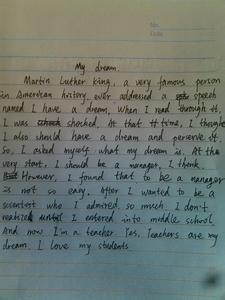 My dream.
Martin Luther King, a very famous person
in American history, ever addressed a speech
named I have a dream, When I read through it,
I was shocked. At that time, I thought
I also should have a dream and perserve it.
So, I asked myself what my dream is. At the
very start, I should be a manager, I think.
However, I found that to be a manager
is not so easy. After I wanted to be a
scientist who I admired so much. I don't
realize until I entered into middle school.
And now I'm a teacher. Yes, Teachers are my
dream. I love my students